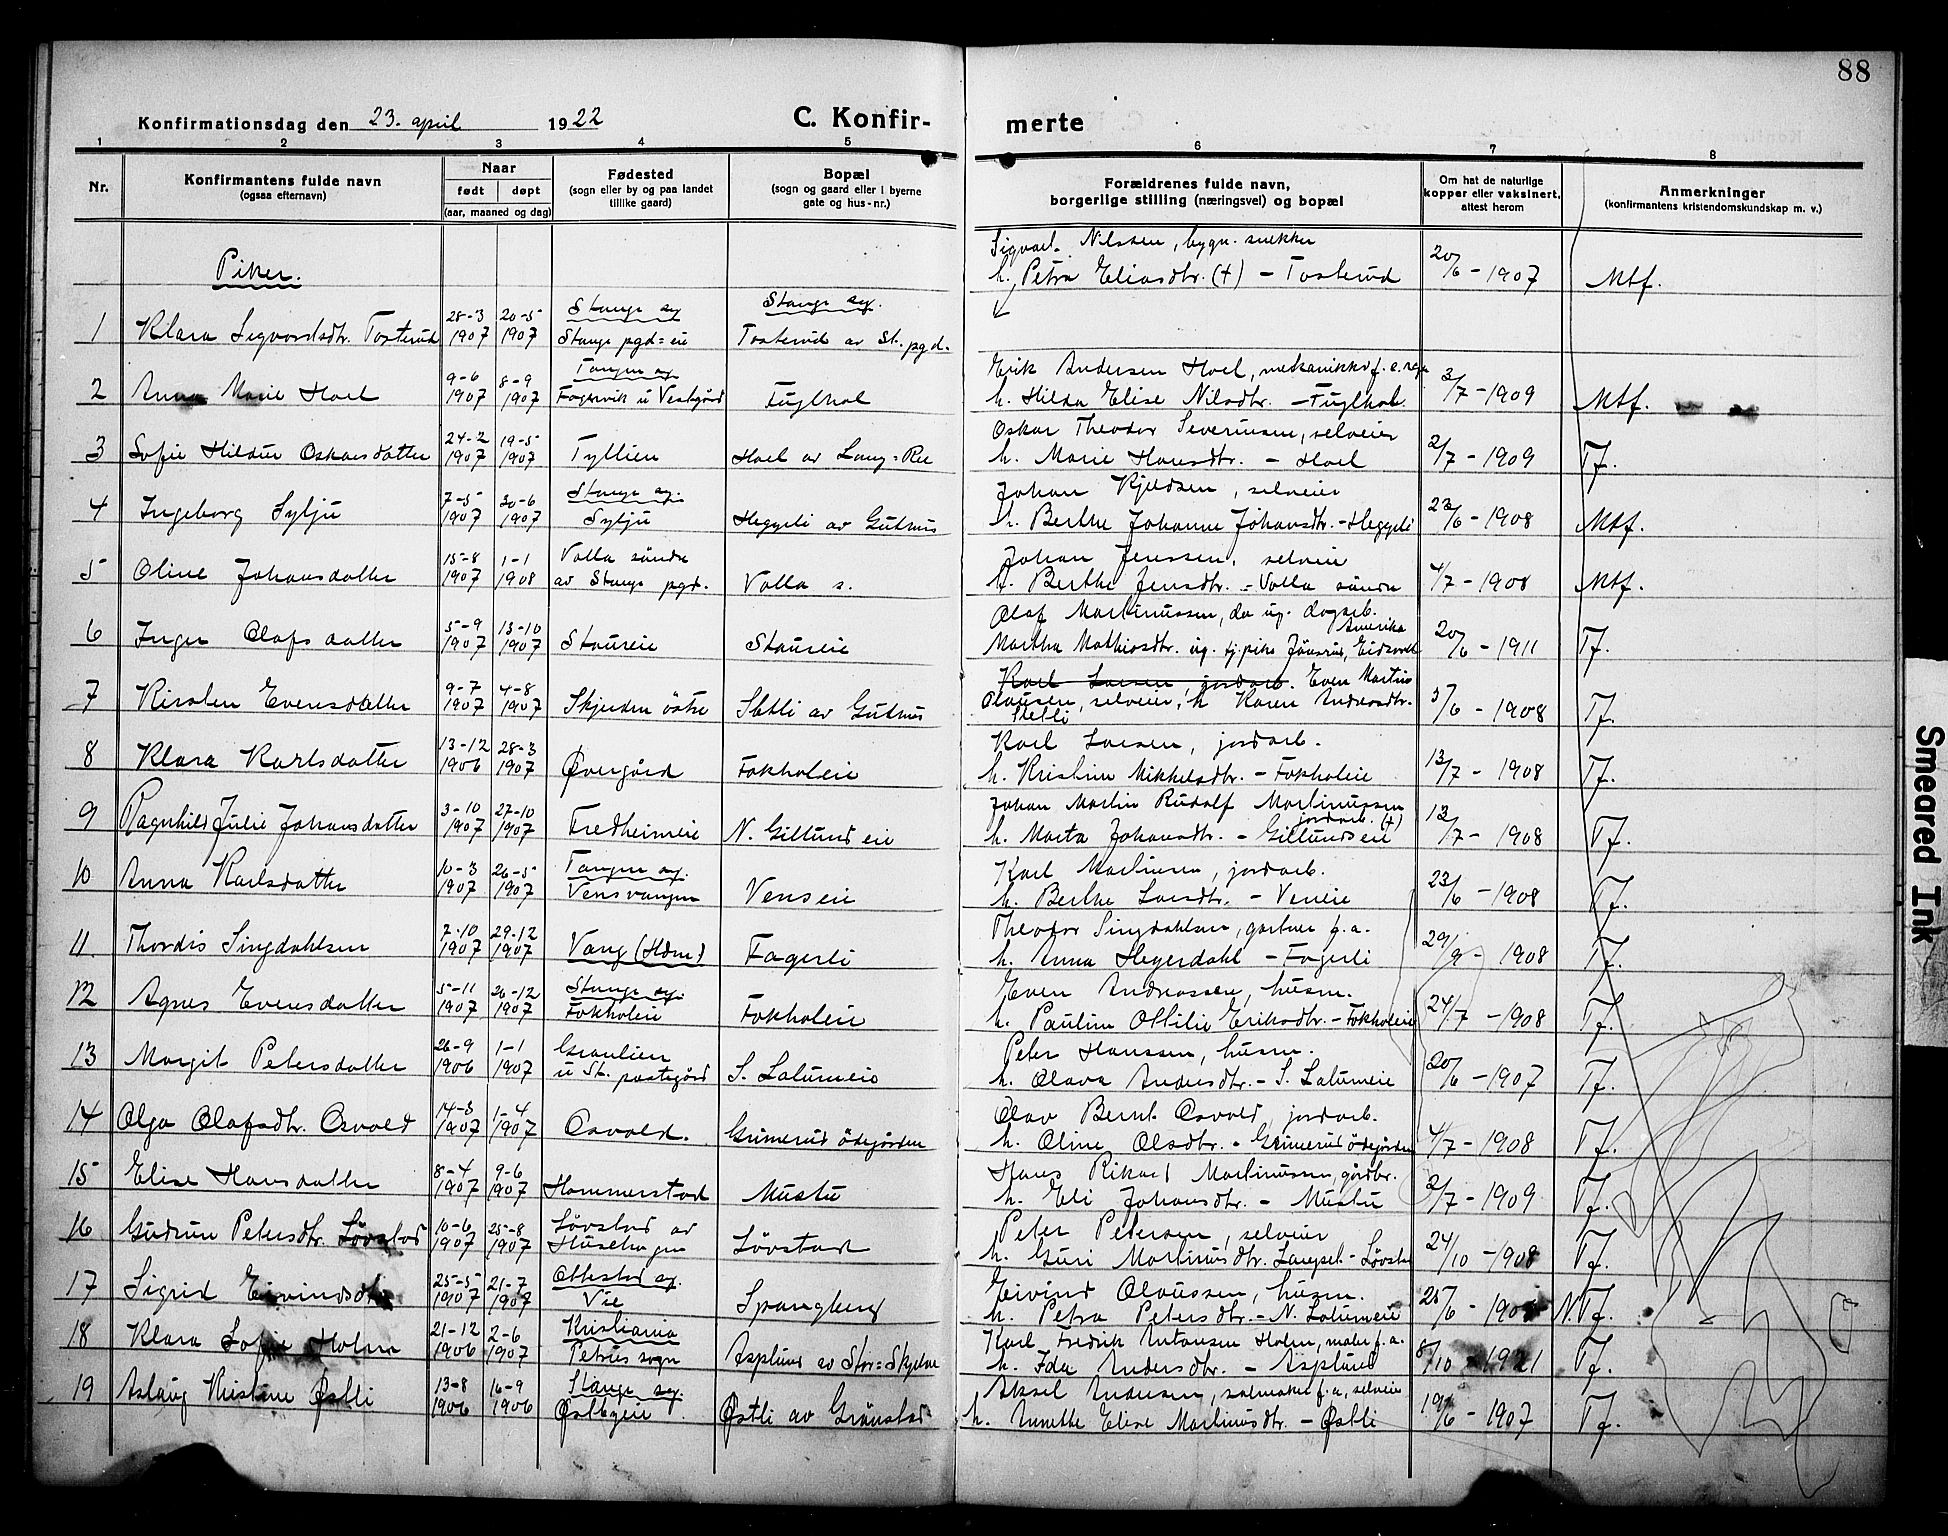 88
Konfirmationsdag den 23. april 1922
C. Konfir-
merte
1 2 3 4 5 6 7 8
Nr.
Konfirmantens fulde navn
(ogsaa efternavn)
Naar
født døpt
(aar, maaned og dag)
Fødested
(sogn eller by og paa landet
tillike gaard)
Bopæl
(sogn og gaard eller i byerne
gate og hus-nr.)
Forældrenes fulde navn,
borgerlige stilling (næringsvei) og bopæl
Om hat de naturlige
kopper eller vaksinert,
attest herom
Anmerkninger
(konfirmantens kristendomskundskap m. v.)
Piker.
Sigvard Nilssen, bygn. snekker
h. Petra Eliasdtr. (+) - Tosterud 20/6 - 1907 Mtf.
28-3 20-5 Stange sg Stange sg.
1 Klara Sigvardsdtr. Tosterud 1907 1907 Stange pgd=eie Tosterud av St. pgd.
9-6 8-9 Tangen sg Erik Andersen Hoel, mekanikker f. e. regn
2 Anna Marie Hoel 1907 1907 Fagervik u Vestgård Fuglhol h. Hilda Elise Nilsdtr. - Fuglhol. 3/7 - 1909 Mtf.
24-2 19-5 Oskar Theodor Severinsen, selveier
3 Sofie Hildur Oskarsdatter 1907 1907 Tyllien Hoel av Lang=Ree h. Marie Hansdtr. - Hoel 2/7 - 1909 Tf.
7-5 30-6 Stange sg. Johan Kjeldsen, selveier
4 Ingeborg Sylju 1907 1907 Sylju Heggeli av Gutmus h. Berthe Johanne Johansdtr. - Heggeli 23/6 - 1908 Mtf.
15-8 1-1 Volla søndre Johan Jenssen, selveier
5 Oline Johansdatter 1907 1908 av Stange pgd. Volla s. h. Berthe Jensdtr. - Volla søndre 4/7 - 1908 Mtf.
5-9 13-10 Olaf Martinussen, da ug. dagarb. Amerika
6 Inger Olafsdatter 1907 1907 Staureie Staureie Martha Mathiasdtr. ug. tj.pike Jønsrud, Eidsvold 20/6 - 1911 Tf.
9-7 4-8 Karl Larsen, jordarb. Even Martin
7 Kirsten Evensdatter 1907 1907 Skjerden østre Sletli av Gutmus Olaussen, selveier, h Karen Andreasdtr. Sletli 3/6 - 1908 Tf.
13-12 28-3 Karl Larsen, jordarb.
8 Klara Karlsdatter 1906 1907 Øvergård Fokholeie h. Kristine Mikkelsdtr. - Fokholeie 13/7 - 1908 Tf.
3-10 27-10 Johan Martin Rudolf Martinussen jordarb. (+)
9 Ragnhild Julie Johansdatter 1907 1907 Fredheimeie N. Gillund eie h. Marta Johansdtr. - Gillundseie 13/7 - 1908 Tf.
10-3 26-5 Tangen sg. Karl Martinsen, jordarb.
10 Anna Karlsdatter 1907 1907 Vensvangen Venseie h. Berthe Larsdtr. - Venseie 23/6 - 1908 Tf.
7-10 29-12 Theodor Singdahlsen, gartner f. a.
11. Thordis Singdahlsen 1907 1907 Vang (Hdm) Fagerli h. Anna Hegerdahl - Fagerli 29/9 - 1908 Tf.
5-11 26-12 Stange sg. Even Andreassen, husm.
12 Agnes Evensdatter 1907 1907 Fokholeie Fokholeie h. Pauline Ottilie Eriksdtr. - Fokholeie 24/7 - 1908 Tf.
26-9 1-1 Granlien Peter Hanssen, husm.
13 Margit Petersdatter 1906 1907 u St. prestegård S. Lalumeie h. Olava Andersdtr. - S. Lalumeie 20/6 - 1907 Tf.
14-3 1-4 Olav Bernt Osvold, jordarb.
14 Olga Olafsdtr. Osvold 1907 1907 Osvold. Grimerud ødegården h. Oline Olsdtr. - Grimerud ødegården 4/7 - 1908 Tf.
8-4 9-6 Hans Rikard Martinussen, gårdbr.
15 Elise Hansdatter 1907 1907 Hommerstad Mustu h. Eli Johansdtr. - Mustu 3/7 - 1909 Tf.
10-6 25-8 Løvstad av Peter Pedersen, selveier
16 Gudrun Petersdtr. Løvstad 1907 1907 Husehagen Løvstad h. Guri Martinusdtr. Langset - Løvstad 24/10 - 1908 Tf.
25-5 21-7 Ottestad sg. Eivind Olaussen, husm.
17 Sigrid Eivindsdtr 1907 1907 Vie Spangberg h. Petra Petersdtr. - N. Lalumeie 25/6 - 1908 N.Tf.
21-12 2-6 Kristiania Karl Fredrik Antonsen Holm, maler f. a.
18 Klara Sofie Holm 1906 1907 Petrus sogn Asplund av Stor=Skjelve h. Ida Andersdtr. - Asplund 8/10 - 1921 Tf.
13-8 16-9 Stange sg. Aksel Andersen, salmaker f. a, selveier
19 Aslaug Kristine Østli 1906 1906 Østbyeie Østli av Grønstad h. Annette Elise Martinusdtr. - Østli 19/6 - 1907 Tf.
Smeared Ink